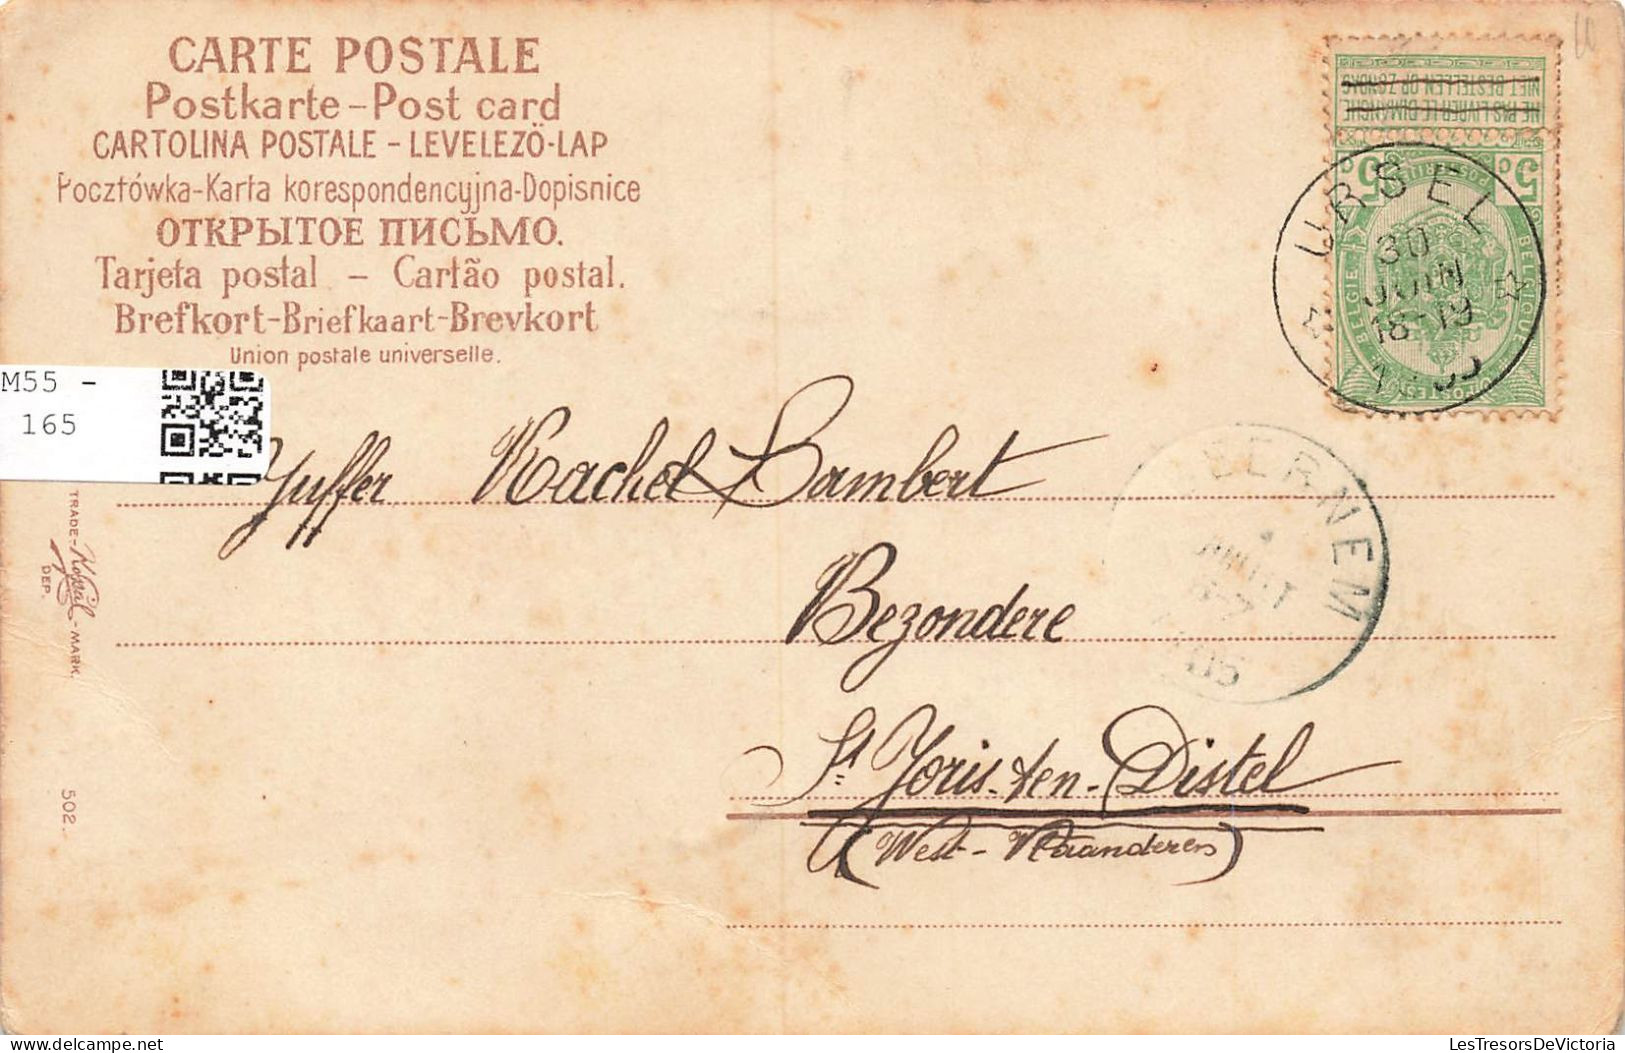 CARTE POSTALE
Postkarte-Post card
CARTOLINA POSTALE - LEVELEZÖ-LAP
Pocztówka-Karta korespondencyjna-Dopisnice
ОТКРЫТОЕ ПИСЬМО.
Tarjeta postal - Cartão postal.
Brefkort-Briefkaart-Brevkort
Union postale universelle.
M55 -
165
NIET BESTELLEN OP ZONDAG
NE PAS LIVRER LE DIMANCHE
5c 5c
BELGIE BELGIQUE
POSTES
URSEL
30
JUIN
18-19
Juffer Rachel Lambert
BERNEM
05
Bezondere
St Joris-ten-Distel
(West-Vlaanderen)
TRADE-
DEP.
-MARK.
502.
LesTresorsDeVictoria